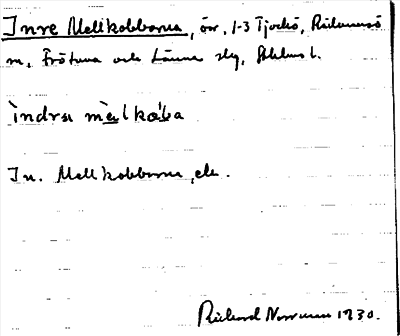 Inre Mellkobbarna, öar, 1-3 Tjockö, Rådmansö
m, Frötuna och Länna slg, Sthlms l.
indra mælkåba
In. Mellkobbarna, ek.
Rickard Norrman 1930.